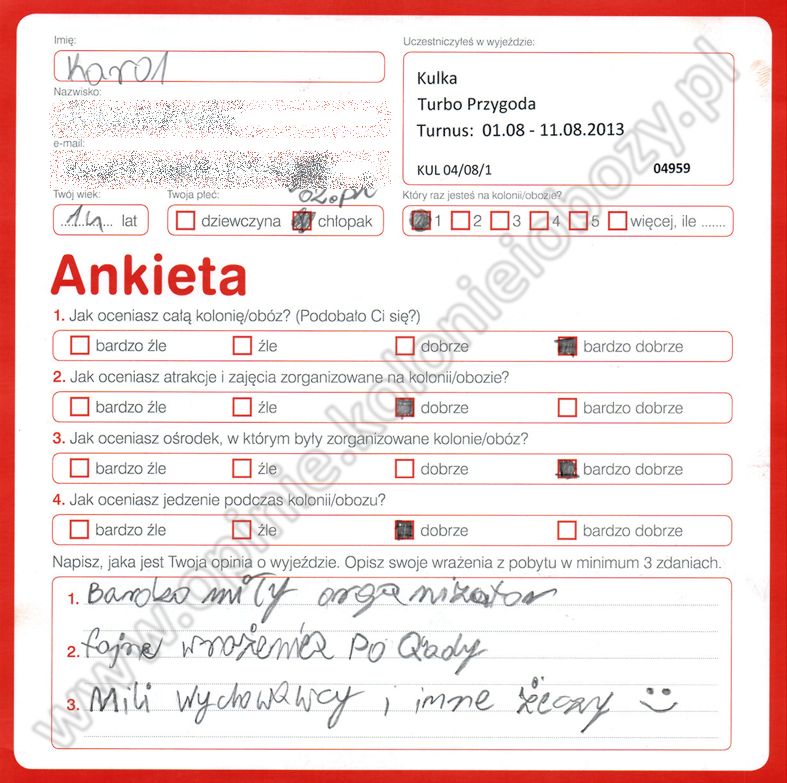 Imię:
Karol
Uczestniczyłeś w wyjeździe:
Kulka
Turbo Przygoda
Turnus: 01.08 - 11.08.2013
KUL 04/08/1 04959
Nazwisko:
e-mail:
Twój wiek:
14 lat
Twoja płeć:
dziewczyna chłopak
Który raz jesteś na kolonii/obozie?
1 2 3 4 5 więcej, ile .......
Ankieta
1. Jak oceniasz całą kolonię/obóz? (Podobało Ci się?)
bardzo źle źle dobrze bardzo dobrze
2. Jak oceniasz atrakcje i zajęcia zorganizowane na kolonii/obozie?
bardzo źle źle dobrze bardzo dobrze
3. Jak oceniasz ośrodek, w którym były zorganizowane kolonie/obóz?
bardzo źle źle dobrze bardzo dobrze
4. Jak oceniasz jedzenie podczas kolonii/obozu?
bardzo źle źle dobrze bardzo dobrze
Napisz, jaka jest Twoja opinia o wyjeździe. Opisz swoje wrażenia z pobytu w minimum 3 zdaniach.
1. Bardzo miły organizator
2. fajne wrażenia Po Q'ady
3. Mili wychowawcy i inne żeczy
www.opinie.kolonieiobozy.pl